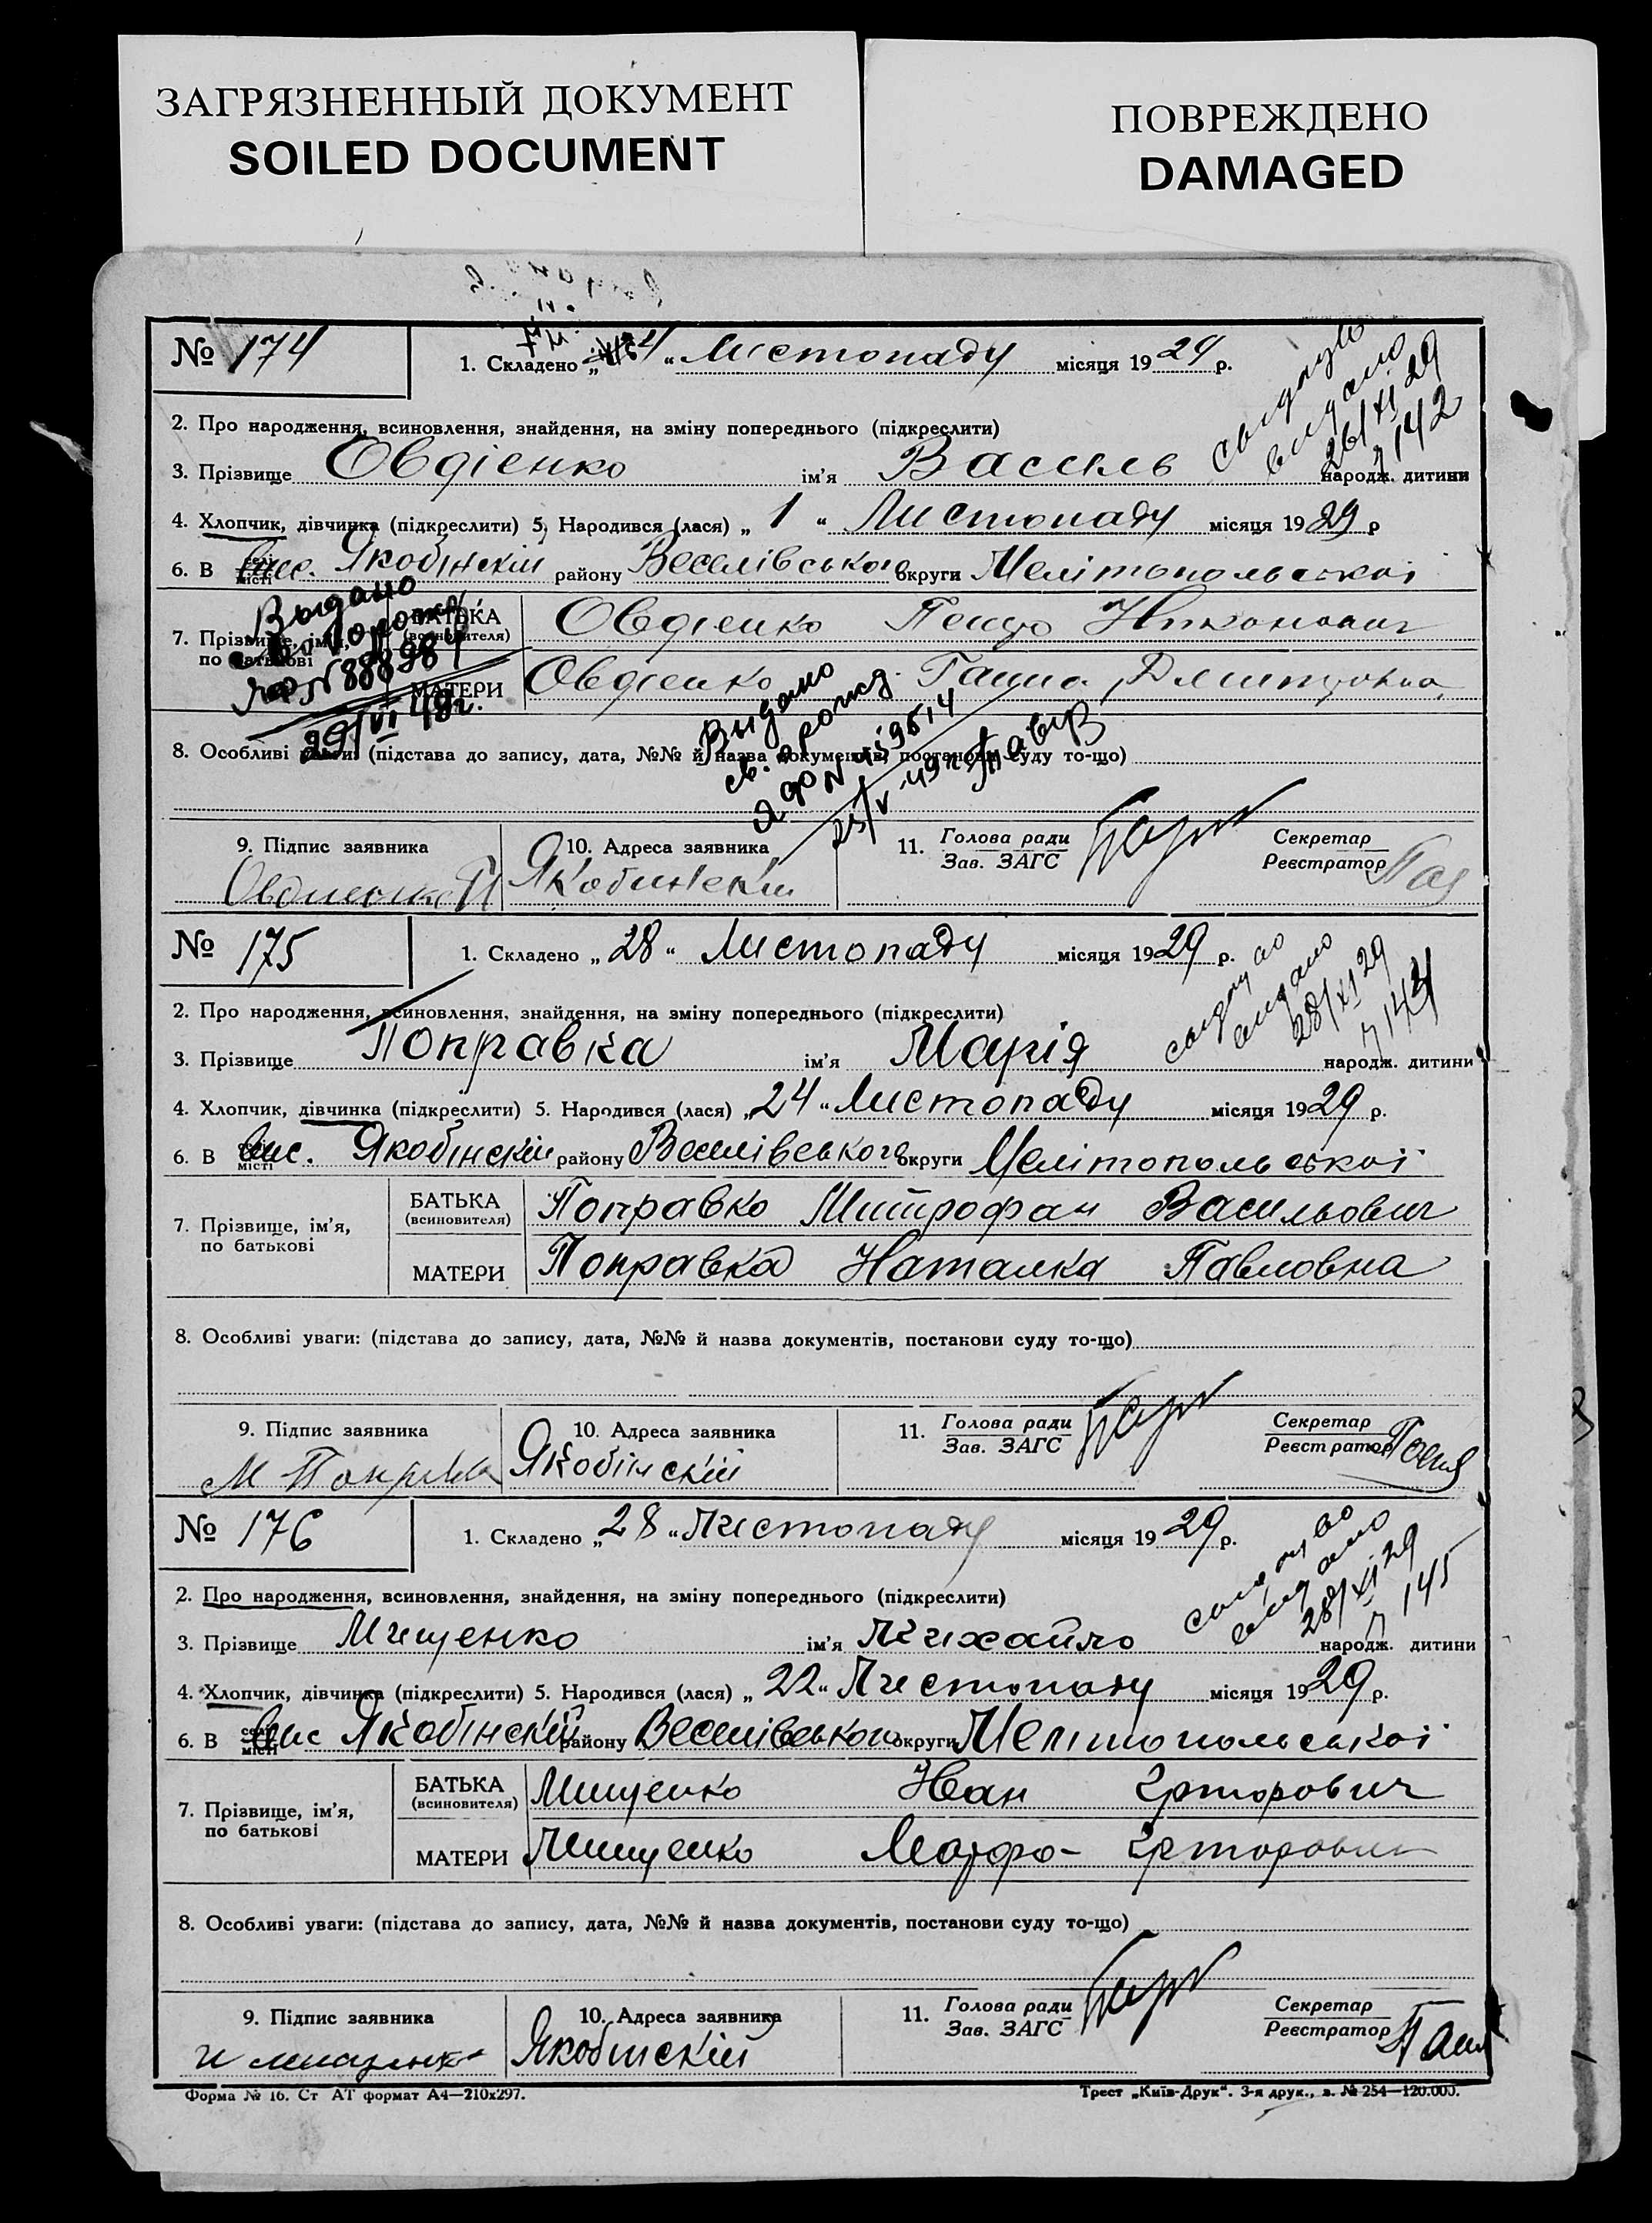 ЗАГРЯЗНЕННЫЙ ДОКУМЕНТ
SOILED DOCUMENT
ПОВРЕЖДЕНО
DAMAGED
№ 174
1. Складено „ 4 “ Листопаду місяця 1929 р.
видано
26/XI 29
142
2. Про народження, всиновлення, знайдення, на зміну попереднього (підкреслити)
3. Прізвище Овдіенко ім'я Василь народж. дитини
4. Хлопчик, дівчинка (підкреслити) 5. Народився (лася) „ 1 “ Листопаду місяця 1929 р
6. В селі місті вис. Якобінскім району Веселівського округи Мелітопольської
7. Прізвище, ім'я, по батькові
БАТЬКА (всиновителя) Овдіенко Никонович
МАТЕРИ Овдіенко Ганна
Выдано
№ 888898
29/VI 49г.
Выдано
св. о рожд.
8. Особливі уваги: (підстава до запису, дата, №№ й назва документів, постанови суду то-що)
9. Підпис заявника
10. Адреса заявника Якобинский
11. Голова ради Зав. ЗАГС
Секретар Реєстратор
№ 175
1. Складено „ 28 “ Листопаду місяця 1929 р.
видано
28/XI 29
144
2. Про народження, всиновлення, знайдення, на зміну попереднього (підкреслити)
3. Прізвище Поправка ім'я Марія народж. дитини
4. Хлопчик, дівчинка (підкреслити) 5. Народився (лася) „ 24 “ Листопаду місяця 1929 р.
6. В селі місті вис. Якобінскім району Веселівського округи Мелітопольської
7. Прізвище, ім'я, по батькові
БАТЬКА (всиновителя) Поправко Митрофан Васильович
МАТЕРИ Поправка Наталка Павловна
8. Особливі уваги: (підстава до запису, дата, №№ й назва документів, постанови суду то-що)
9. Підпис заявника М Поправка
10. Адреса заявника Якобінскій
11. Голова ради Зав. ЗАГС
Секретар Реєстратор
№ 176
1. Складено „ 28 “ Листопаду місяця 1929 р.
видано
28/XI 29
145
2. Про народження, всиновлення, знайдення, на зміну попереднього (підкреслити)
3. Прізвище Мищенко ім'я Михайло народж. дитини
4. Хлопчик, дівчинка (підкреслити) 5. Народився (лася) „ 22 “ Листопаду місяця 1929 р.
6. В селі місті вис Якобінскій району Веселівського округи Мелітопольської
7. Прізвище, ім'я, по батькові
БАТЬКА (всиновителя) Мищенко Иван
МАТЕРИ Мищенко Марфа
8. Особливі уваги: (підстава до запису, дата, №№ й назва документів, постанови суду то-що)
9. Підпис заявника
10. Адреса заявника Якобинскій
11. Голова ради Зав. ЗАГС
Секретар Реєстратор
Форма № 16. Ст АТ формат А4—210х297.
Трест „Київ-Друк“. 3-я друк., з. № 254—120.000.